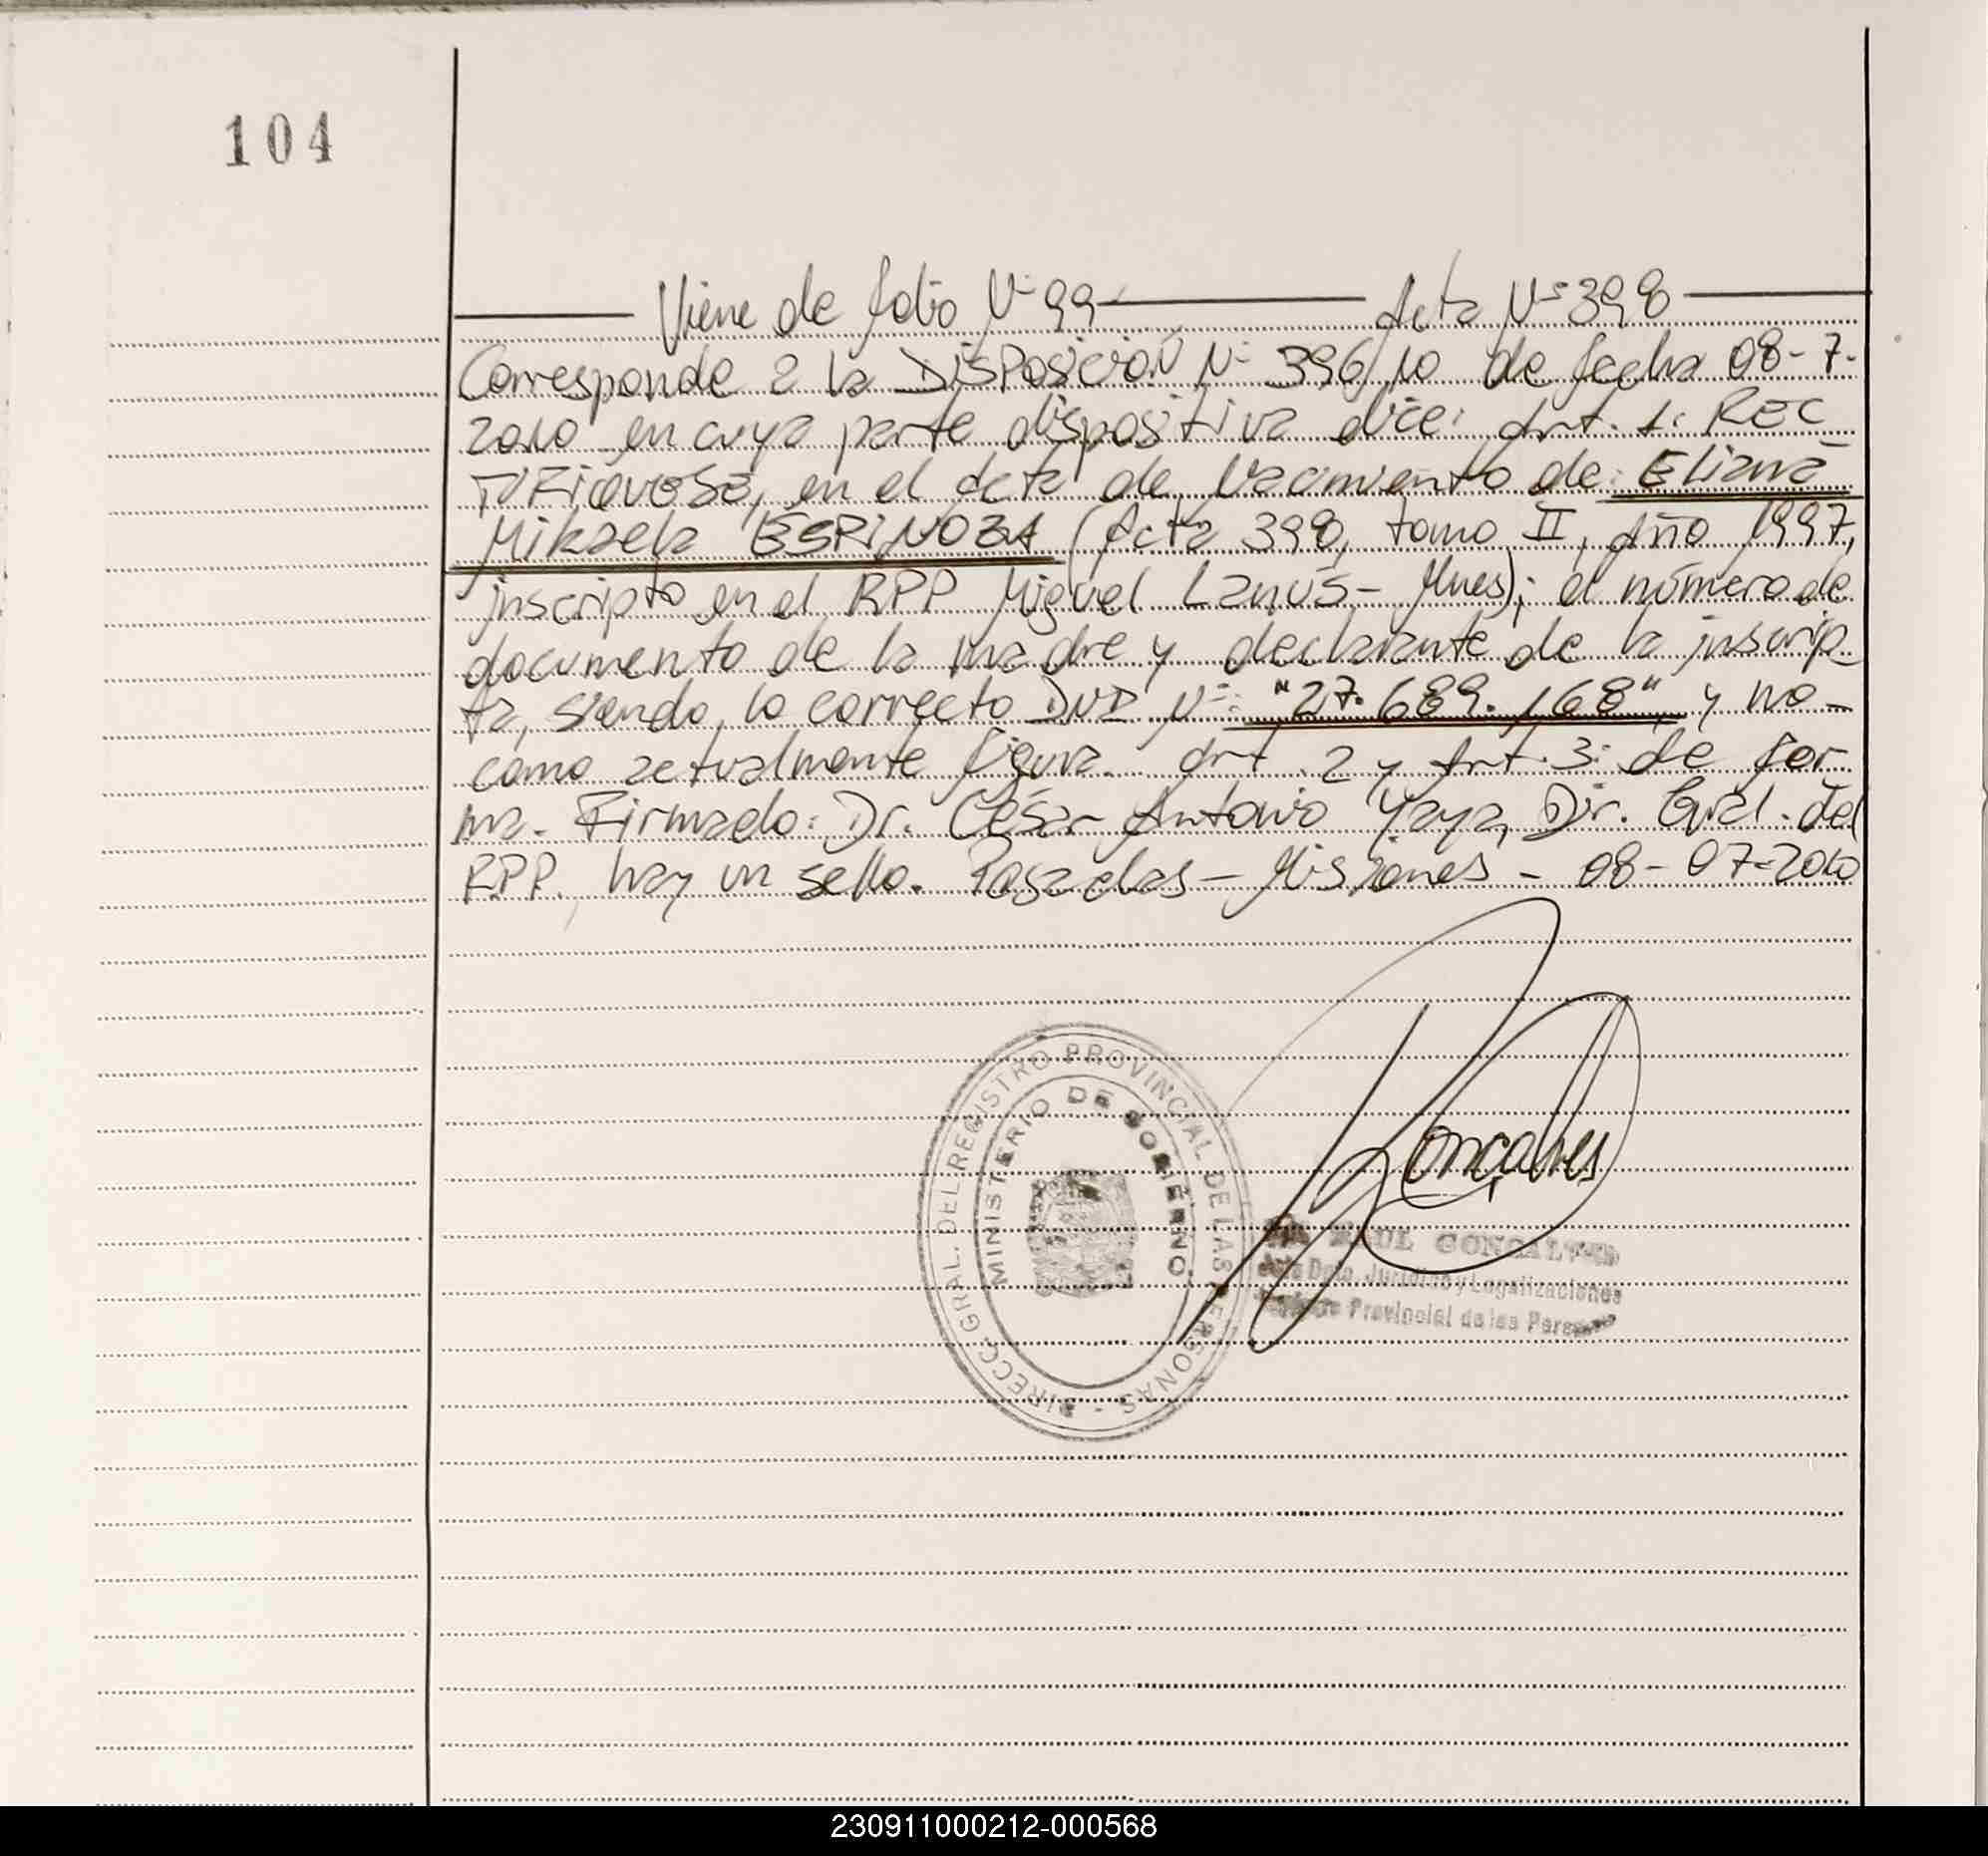 104
Viene de folio Nº 99 Acta Nº 398
Corresponde a la DISPosición Nº 396/10 de fecha 08-7-
2010 en cuya parte dispositiva dice: Art. 1: REC
TIFIQUESE, en el Acta de Nacimiento de: Eliana
Mikaela ESPINOZA (Acta 398, tomo II, Año 1997,
inscripto en el RPP Miguel Lanús - Mnes); el número de
documento de la madre y declarante de la inscrip_
ta, siendo lo correcto DNI Nº: "27.689.168", y no_
como actualmente figura. Art. 2 y Art. 3: de for_
ma. Firmado: Dr. César Antonio Yaya, Dir. Gral. del
RPP. hay un sello. Posadas - Misiones - 08-07-2010
DIRECC. GRAL. DEL REGISTRO PROVINCIAL DE LAS PERSONAS -
MINISTERIO DE GOBIERNO
Gonçalves
RAUL GONÇALVES
Dpto. Jurídico y Legalizaciones
Registro Provincial de las Personas
230911000212-000568